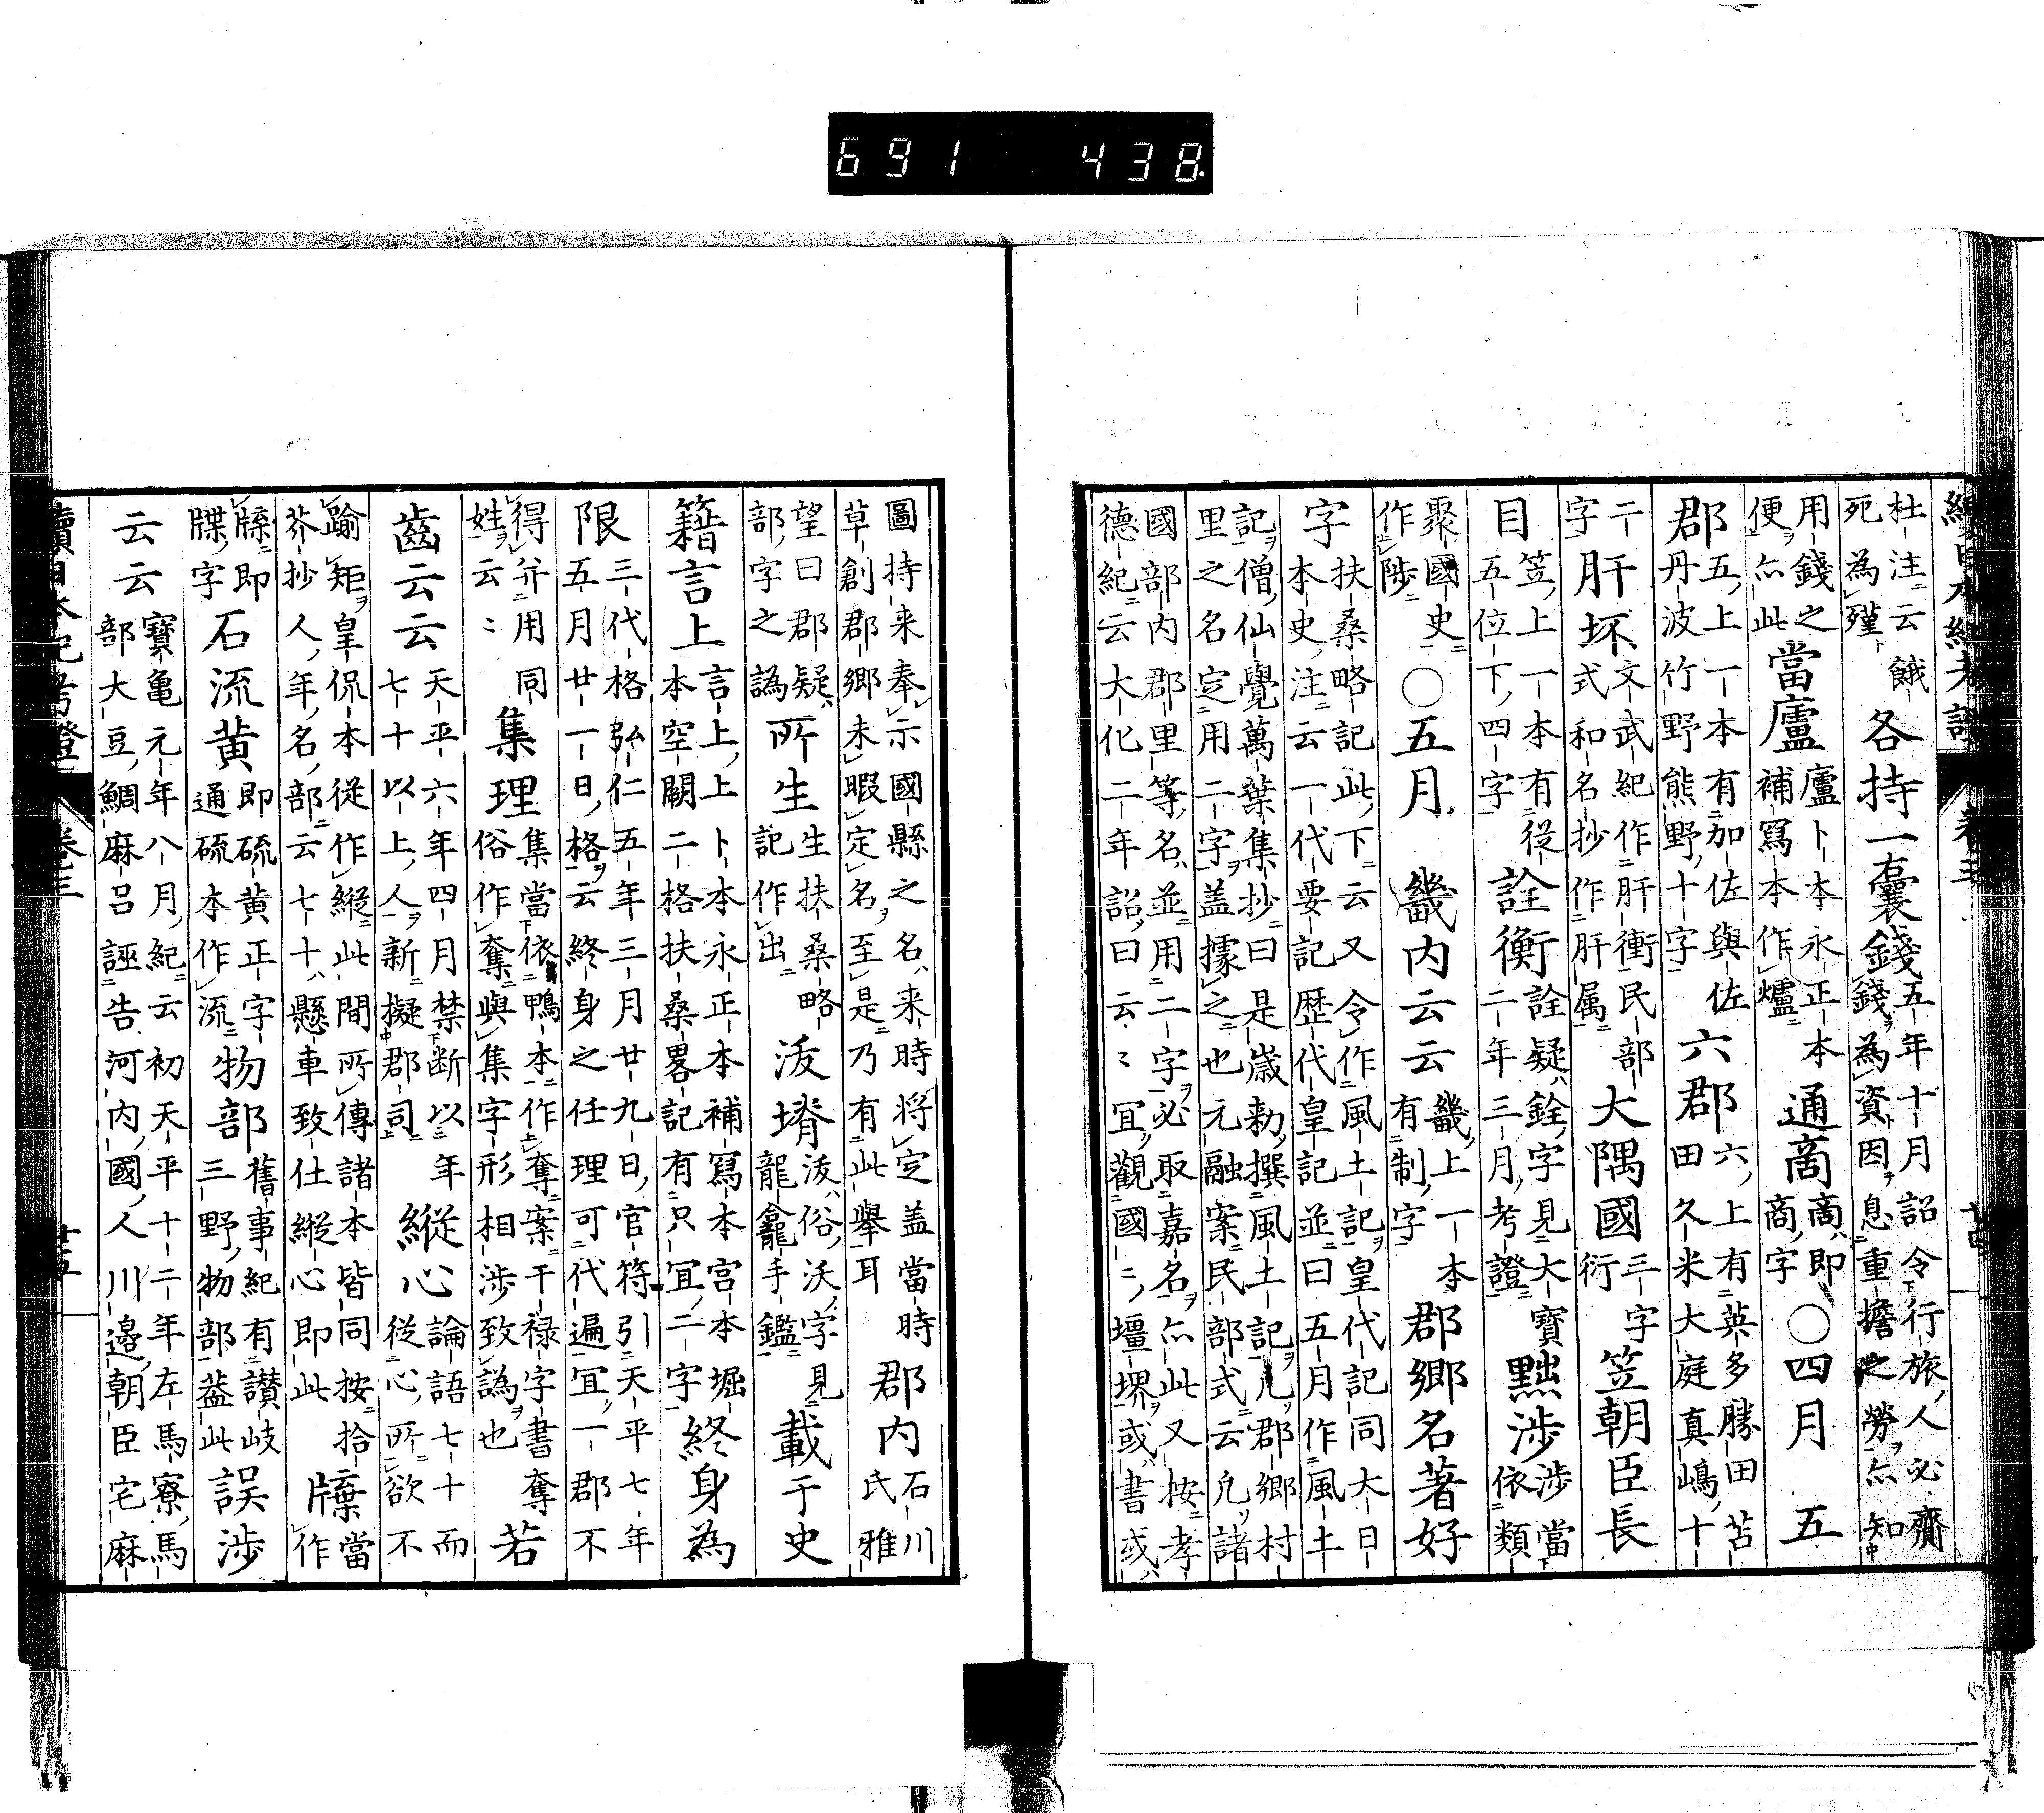 續日本紀考證 卷三 廿四
杜注云餓
死為殣
各持一囊錢
五年十月詔令行旅人必齎
錢為資因息重擔之勞亦知
用錢之
便亦此
當廬
廬卜本永正本
補寫本作爐
通商
商即
商字
○四月 五
郡
五上一本有加佐與佐
丹波竹野熊野十字
六郡
六上有英多勝田苫
田久米大庭真嶋十
二
字
肝坏
文武紀作肝衝民部
式和名抄作肝属
大隅國
三字
衍
笠朝臣長
目
笠上一本有従
五位下四字
詮衡
詮疑銓字見大寶
二年三月考證
黜渉
渉當
依類
聚國史
作陟
○五月 畿内云云
畿上一本
有制字
郡郷名著好
字
扶桑略記此下云又令作風土記皇代記同大日
本史注云一代要記歴代皇記並曰五月作風土
記僧仙覺萬葉集抄曰是歳勅撰風土記凡郡郷村
里之名定用二字盖據之也元融案民部式云凡諸
國部内郡里等名並用二字必取嘉名亦此又按孝
德紀云大化二年詔曰云〻冝觀國〻壃堺或書或
圖持来奉示國縣之名来時将定盖當時
草創郡郷未暇定名至是乃有此擧耳
郡内
石川
氏雅
望曰郡疑
部字之譌
所生
生扶桑略
記作出
沷塉
沷俗沃字見
龍龕手鑑
載于史
籍言上
言上上卜本永正本補寫本宮本堀
本空闕二格扶桑畧記有只冝二字
終身為
限
三代格弘仁五年三月廿九日官符引天平七年
五月廿一日格云終身之任理可代遍冝一郡不
得并用同
姓云〻
集理
集當依鴨本作奪案干禄字書奪
俗作奪與集字形相渉致譌也
若
齒云云
天平六年四月禁断以年
七十以上人新擬郡司
縦心
論語七十而
従心所欲不
踰矩皇侃本従作縦此間所傳諸本皆同按拾
芥抄人年名部云七十懸車致仕縦心即此
當
作
即
牒字
石流黄
即硫黄正字
通硫本作流
物部
舊事紀有讃岐
三野物部葢此
誤渉
云云
寶亀元年八月紀云初天平十二年左馬寮馬
部大豆鯛麻呂誣告河内國人川邊朝臣宅麻
續日本紀考證 卷三 廿五
691 438